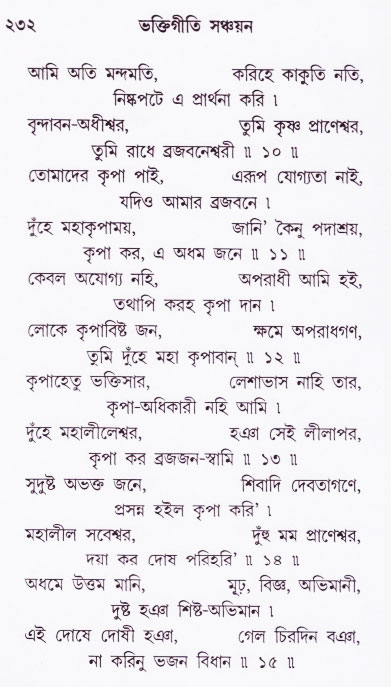 ২৩২ ভক্তিগীতি সঞ্চয়ন
আমি অতি মন্দমতি, করিহে কাকুতি নতি,
নিষ্কপটে এ প্রার্থনা করি ।
বৃন্দাবন-অধীশ্বর, তুমি কৃষ্ণ প্রাণেশ্বর,
তুমি রাধে ব্রজবনেশ্বরী ॥ ১০ ॥
তোমাদের কৃপা পাই, এরূপ যোগ্যতা নাই,
যদিও আমার ব্রজবনে ।
দুঁহে মহাকৃপাময়, জানি’ কৈনু পদাশ্রয়,
কৃপা কর, এ অধম জনে ॥ ১১ ॥
কেবল অযোগ্য নহি, অপরাধী আমি হই,
তথাপি করহ কৃপা দান ।
লোকে কৃপাবিষ্ট জন, ক্ষমে অপরাধগণ,
তুমি দুঁহে মহা কৃপাবান্ ॥ ১২ ॥
কৃপাহেতু ভক্তিসার, লেশাভাস নাহি তার,
কৃপা-অধিকারী নহি আমি ।
দুঁহে মহালীলেশ্বর, হঞা সেই লীলাপর,
কৃপা কর ব্রজজন-স্বামি ॥ ১৩ ॥
সুদুষ্ট অভক্ত জনে, শিবাদি দেবতাগণে,
প্রসন্ন হইল কৃপা করি’ ।
মহালীল সবেশ্বর, দুঁহু মম প্রাণেশ্বর,
দয়া কর দোষ পরিহরি’ ॥ ১৪ ॥
অধমে উত্তম মানি, মূঢ়, বিজ্ঞ, অভিমানী,
দুষ্ট হঞা শিষ্ট-অভিমান ।
এই দোষে দোষী হঞা, গেল চিরদিন বঞা,
না করিনু ভজন বিধান ॥ ১৫ ॥